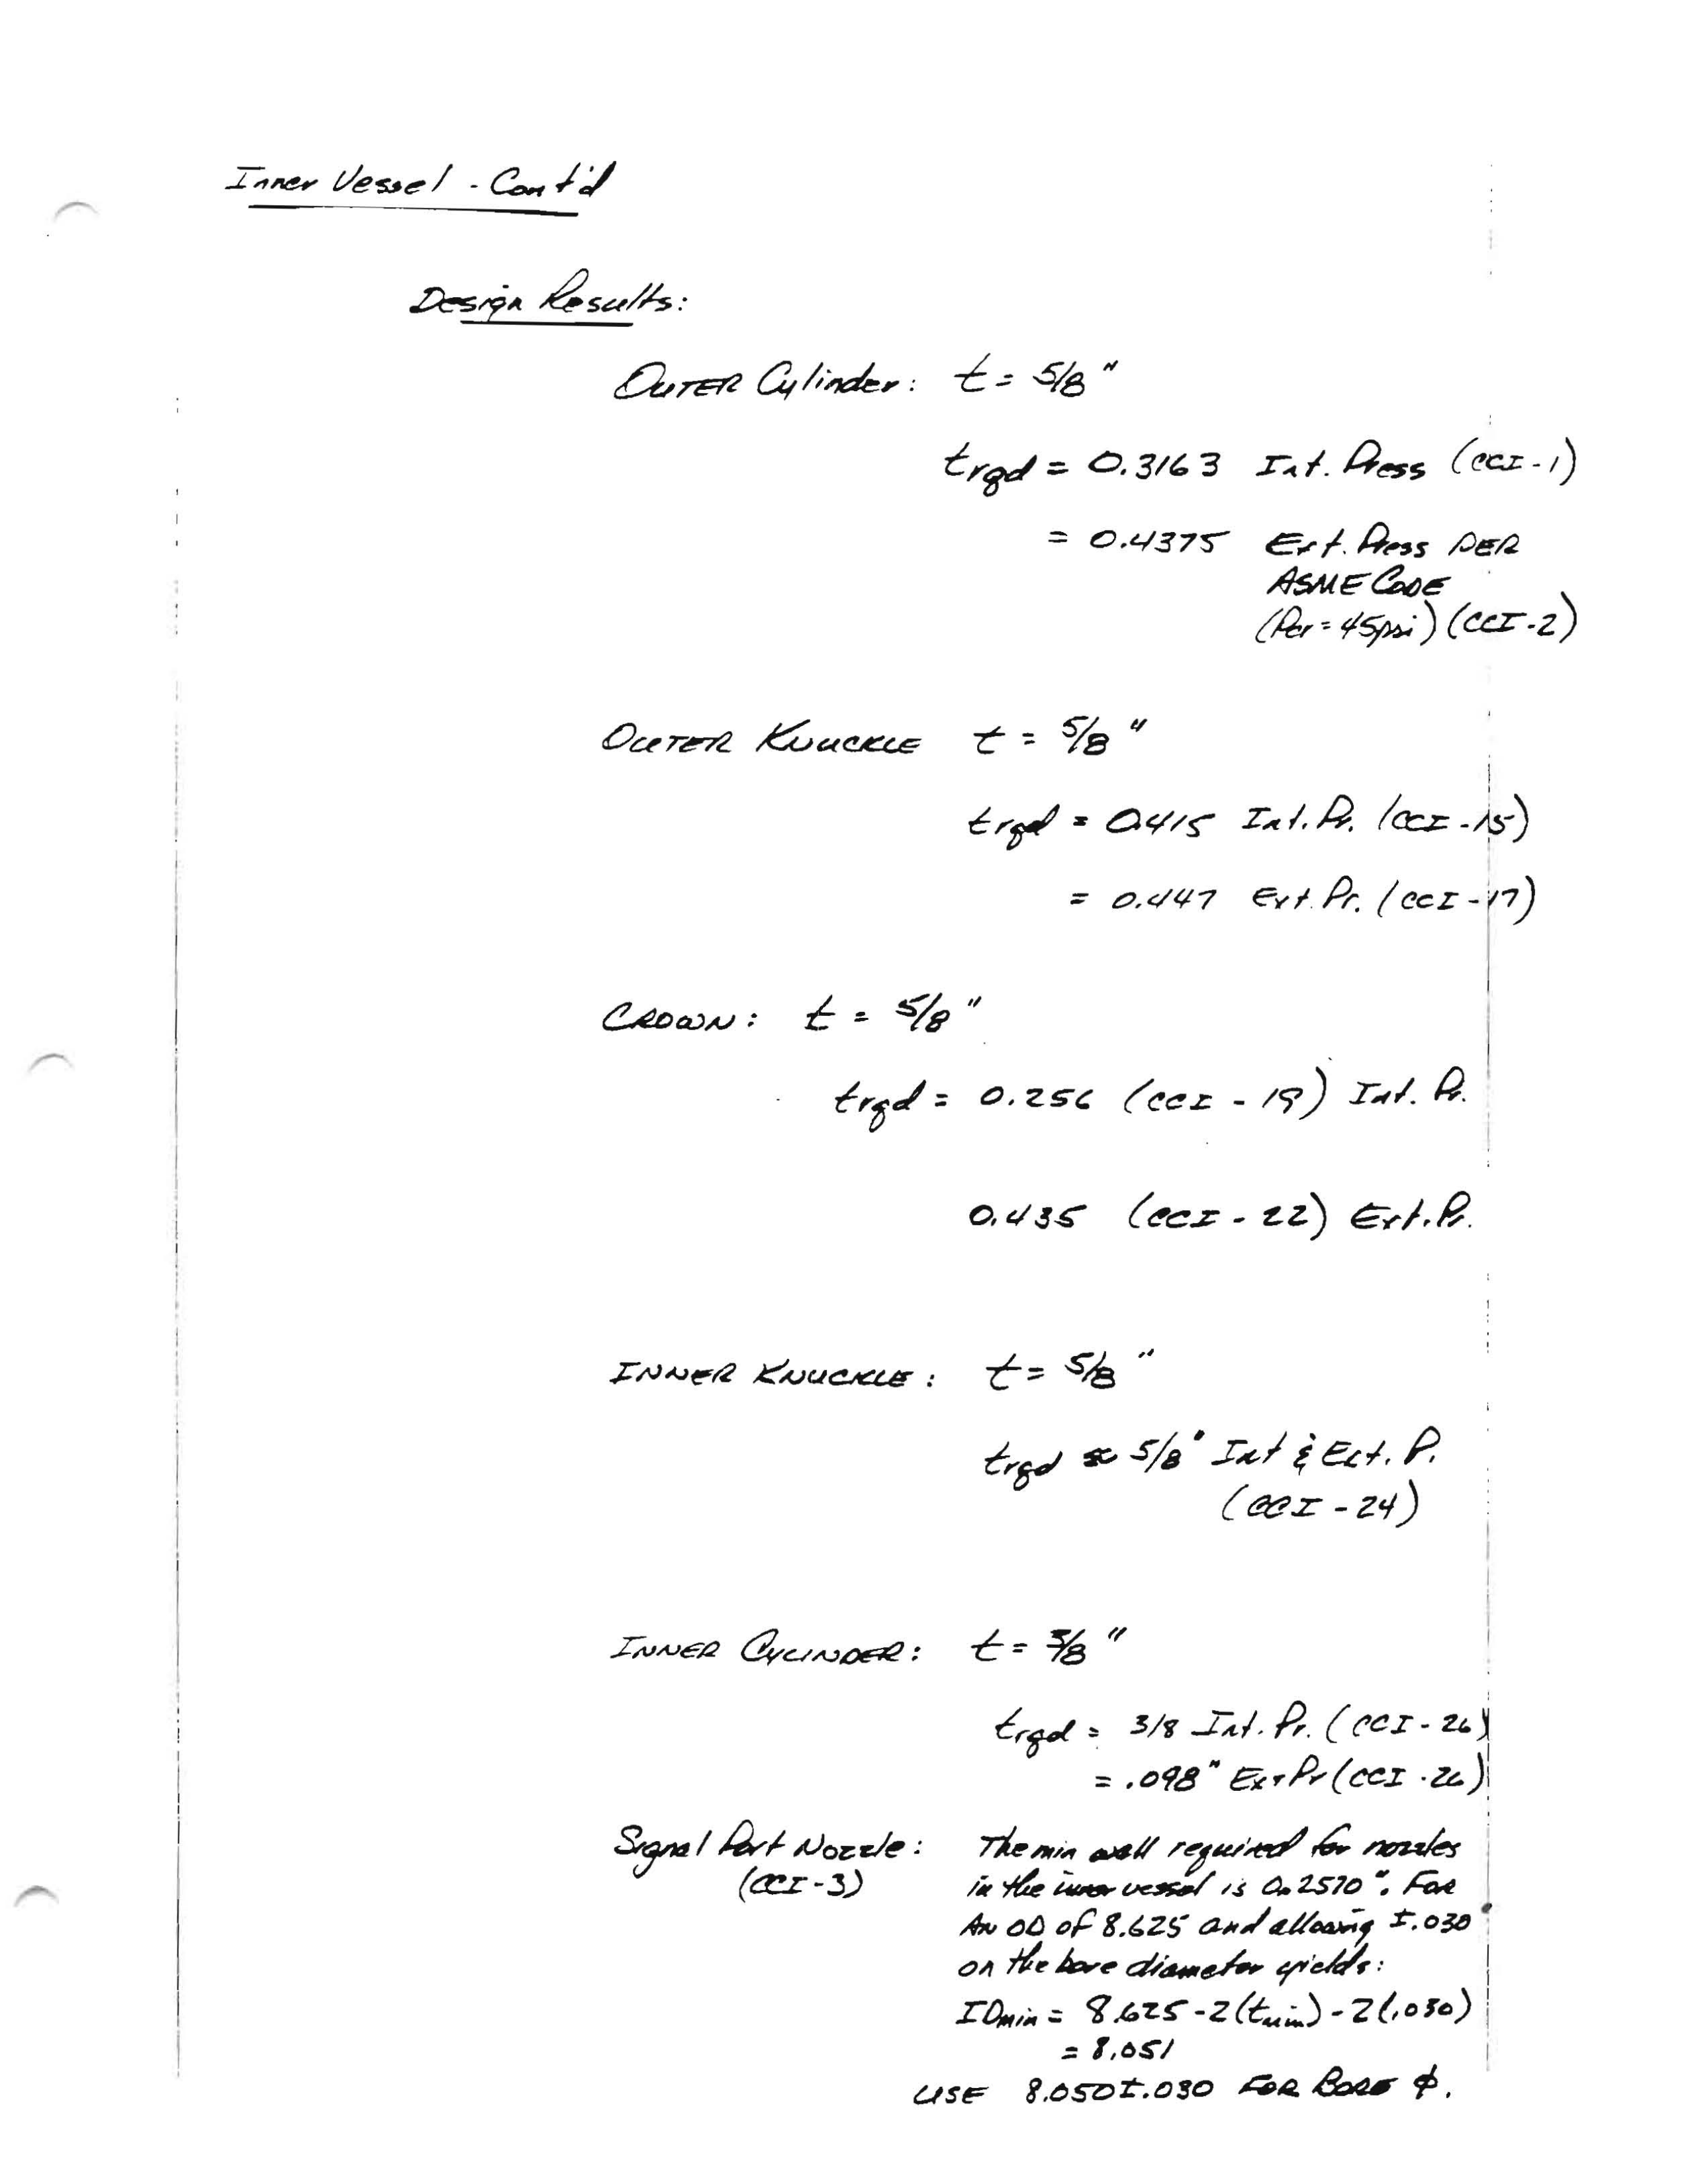 Inner Vessel - Cont'd
Design Results:
OUTER Cylinder: t = 5/8"
trqd = 0.3163 Int. Press (CCI-1)
= 0.4375 Ext. Press PER
ASME CODE
(Pcr = 45psi) (CCI-2)
OUTER KNUCKLE t = 5/8"
trqd = 0.415 Int. Pr. (CCI-15)
= 0.447 Ext. Pr. (CCI-17)
CROWN: t = 5/8"
trqd = 0.256 (CCI - 19) Int. Pr.
0.435 (CCI - 22) Ext. Pr.
INNER KNUCKLE: t = 5/8"
trqd ≈ 5/8" Int & Ext. P.
(CCI - 24)
INNER CYLINDER: t = 3/8"
trqd = 3/8 Int. Pr. (CCI - 26)
= .098" Ext Pr (CCI - 26)
Signal Port Nozzle: The min wall required for nozzles
(CCI-3) in the inner vessel is 0.2570". For
AN OD of 8.625 and allowing ±.030"
on the bore diameter yields:
IDmin = 8.625 - 2(tmin) - 2(.030)
= 8.051
USE 8.050±.030 FOR BORE ϕ.